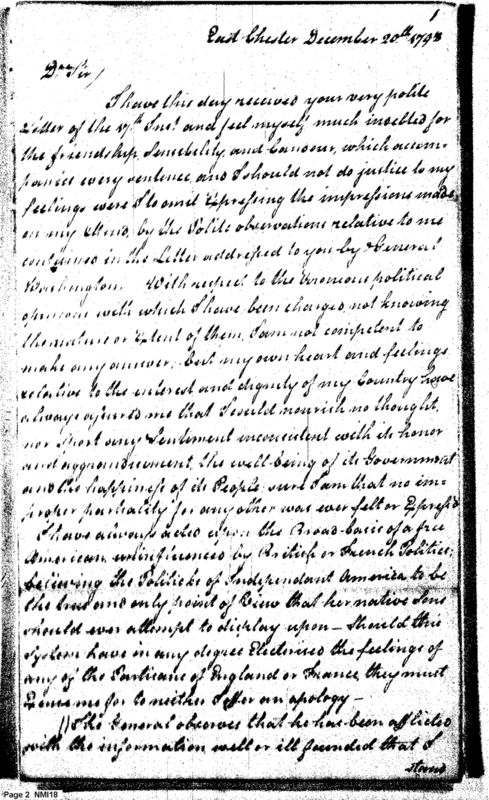 1
East Chester December 20th 1798
Dr Sir/
I have this day received your very polite
Letter of the 17th Inst and feel myself much indebted for
the friendship, Sensibility, and Candour, which accom-
panies every sentence, and I should not do justice to my
feelings were I to omit Expressing the impressions made
on my Mind, by the Polite observations relative to me
contained in the Letter addressed to you by General
Washington. With respect to the erroneous political
opinions with which I have been charged, not knowing
the nature or Extent of them, I am not competent to
make any answer; but my own heart and feelings
relative to the interest and dignity of my Country have
always assured me that I could nourish no thought,
nor sport any Sentiment inconsistent with its honor
and aggrandizement, the well being of its Government
and the happiness of its People, sure I am that no im-
proper partiality for any other was ever felt or Express'd
I have always acted upon the Broad basis of a free
American, uninfluenced by British or French Politics;
believing the Politicks of Independant America to be
the true and only point of View that her native Sons
should ever attempt to display upon — Should this
System have in any degree Electerised the feelings of
any of the Partizans of England or France, they must
Excuse me for to neither I offer an apology —
The General observes that he has been afflicted
with the information well or ill founded that I
stood
Page 2 NMI18